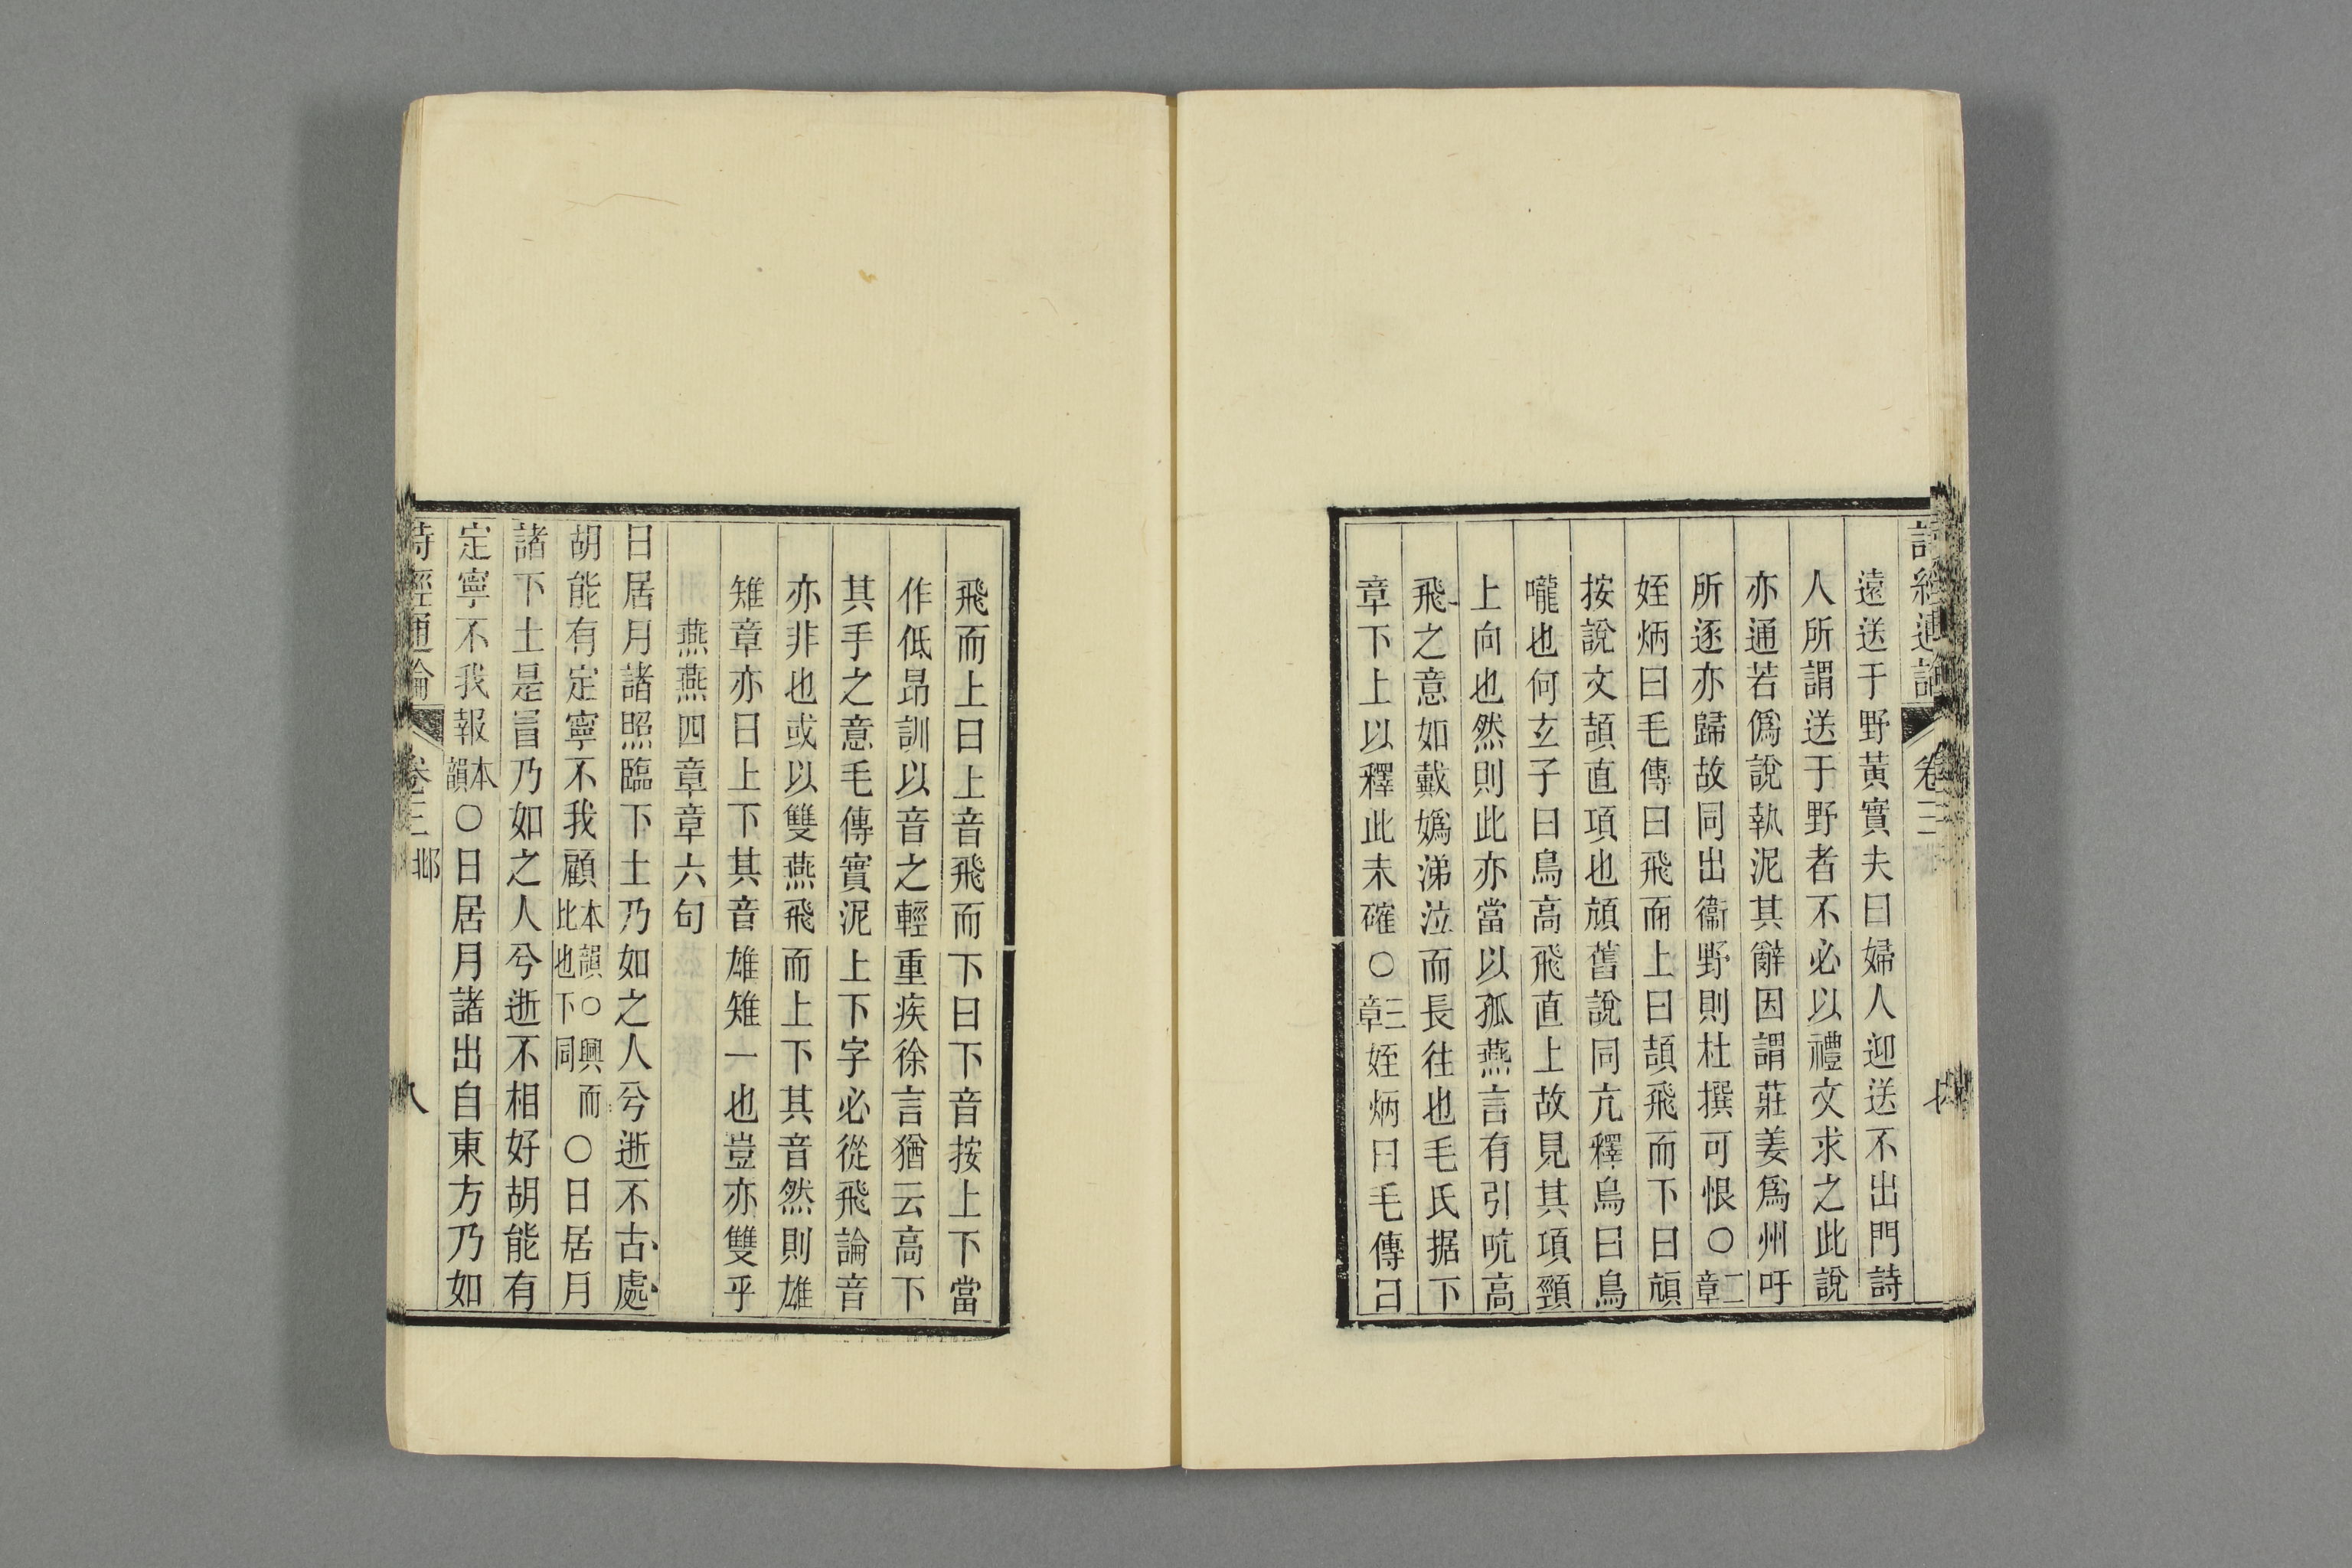 詩經通論 卷三 七
遠送于野黃實夫曰婦人迎送不出門詩
人所謂送于野者不必以禮文求之此說
亦通若僞說執泥其辭因謂莊姜爲州吁
所逐亦歸故同出衞野則杜撰可恨○二章
姪炳曰毛傳曰飛而上曰頡飛而下曰頏
按說文頡直項也頏舊說同亢釋鳥曰鳥
嚨也何玄子曰鳥高飛直上故見其項頸
上向也然則此亦當以孤燕言有引吭高
飛之意如戴嬀涕泣而長往也毛氏据下
章下上以釋此未確○三章姪炳曰毛傳曰
飛而上曰上音飛而下曰下音按上下當
作低昂訓以音之輕重疾徐言猶云高下
其手之意毛傳實泥上下字必從飛論音
亦非也或以雙燕飛而上下其音然則雄
雉章亦曰上下其音雄雉一也豈亦雙乎
燕燕四章章六句
日居月諸照臨下土乃如之人兮逝不古處
胡能有定寧不我顧本韻○興而比也下同○日居月
諸下土是冒乃如之人兮逝不相好胡能有
定寧不我報本韻○日居月諸出自東方乃如
詩經通論 卷三 邶 八